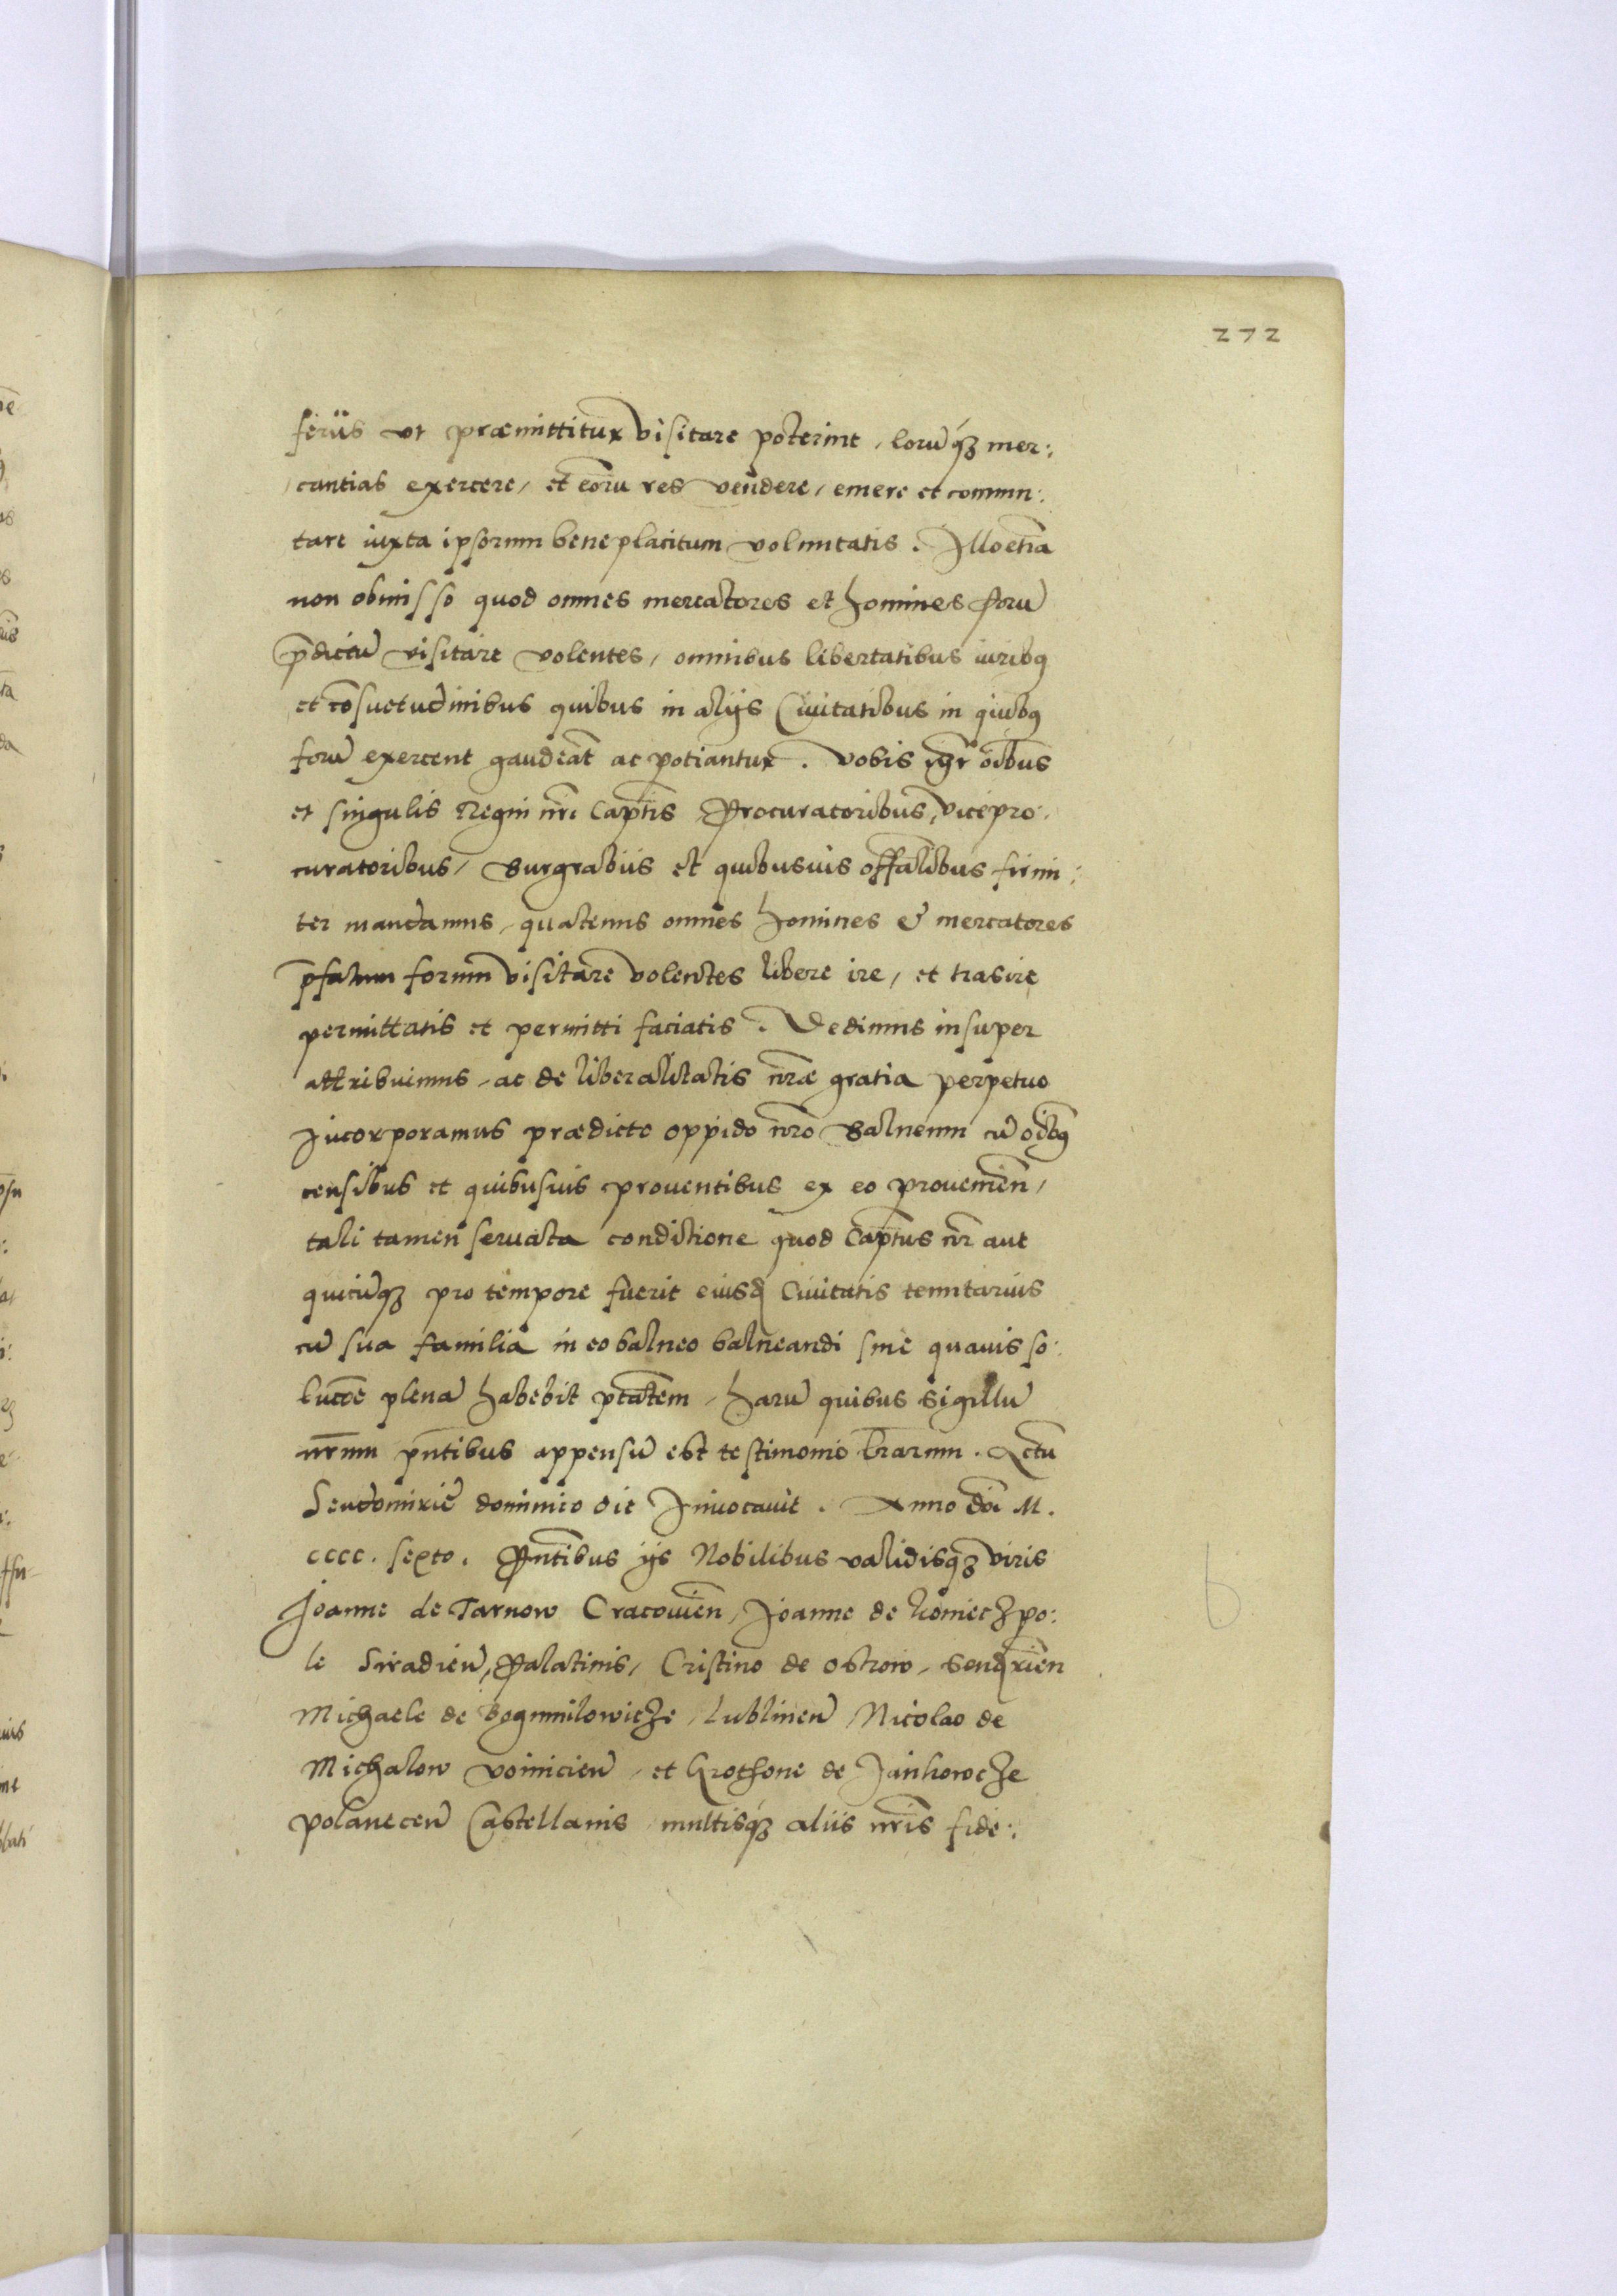 272
feriis vt præmittitur visitare poterint, eorūq₃ mer:
cantias exercere, et eorū res vendere, emere et commu:
tare iuxta ipsorum beneplacitum voluntatis. Illo etiā
non obmisso quod omnes mercatores et homines forū
p̄dictū visitare volentes, omnibus libertatibus iuribꝫ
et cōsuetudinibus quibus in alijs Ciuitatibus in quibꝫ
forū exercent gaudeāt ac potiantur. Vobis igr̄ oībus
et singulis Regni nr̄i Capt̄is Procuratoribus, vicepro:
curatoribus, Burgrabiis et quibusuis offālibus firmi:
ter mandamus, quatenus omnes homines & mercatores
p̄fatum forum visitare volentes libere ire, et trāsire
permittatis et permitti faciatis. Dedimus insuper
attribuimus, ac de liberalitatis nr̄æ gratia perpetuo
Incorporamus prædicto oppido nr̄o Balneum cū oībꝫ
censibus et quibusuis prouentibus ex eo prouenien̄,
tali tamen seruata conditione quod Capt̄us nr̄ aut
quicūq₃ pro tempore fuerit eiusd̄ Ciuitatis tenutarius
cū sua familia in eo balneo balneandi sine quauis so:
lucōe plenā habebit ptātem, harū quibus sigillū
nr̄um pn̄tibus appensū est testimonio lr̄arum. Actū
Sendomirie dominico die Inuocauit. Anno dn̄i M.
cccc. sexto. Pn̄tibus ijs Nobilibus validisq₃ viris
Joanne de Tarnow Cracouien̄, Joanne de Konieczpo:
le Siradien̄, Palatinis, Cristino de Ostrow, Send̄rien̄
Michaele de Bogumilowicze, Lublinen̄, Nicolao de
Michalow Voinicien̄, et Krothone de Jankowcze
polanecen̄ Castellanis, multisq₃ aliis nr̄is fide: